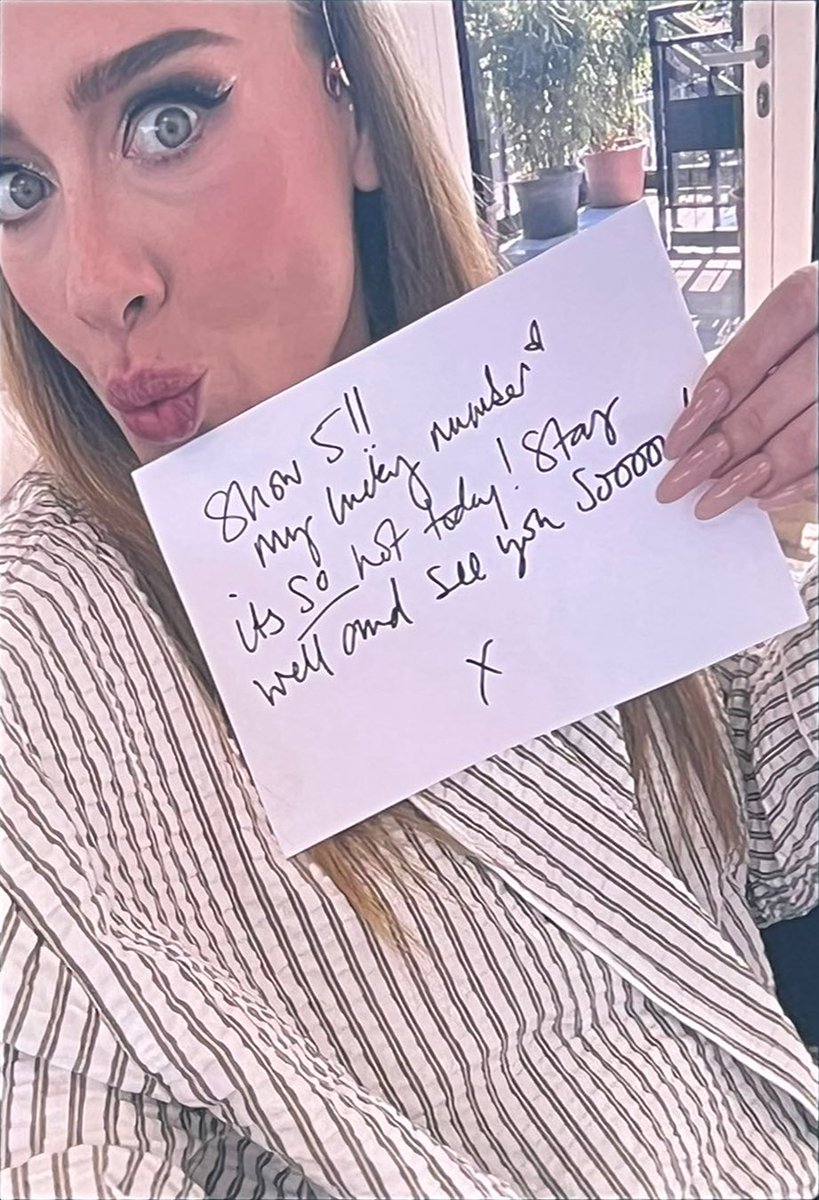 Show 5!!
my lucky number
its so hot today! Stay
well and see you Sooooon!
X